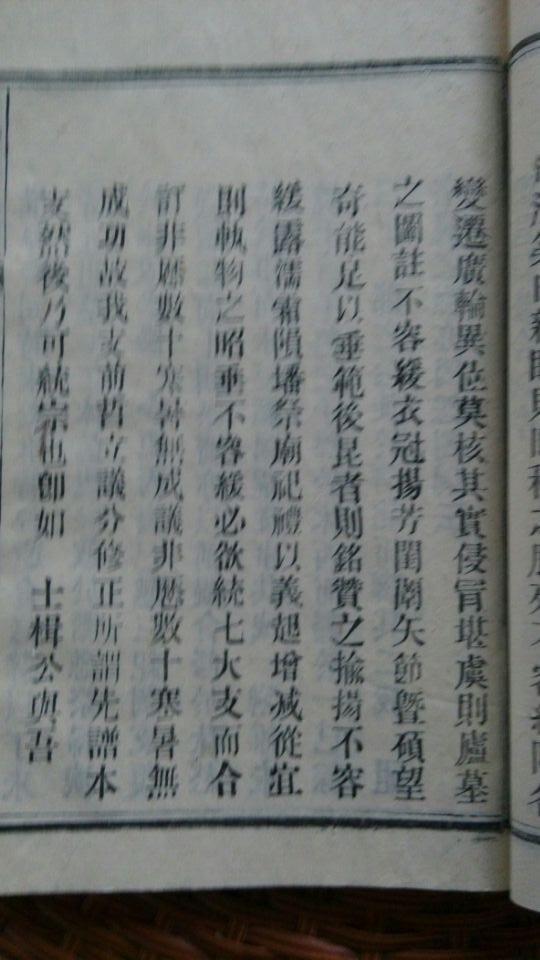 變遷廣輪異位莫核其實侵冒堪虞則廬墓
之圖註不容緩衣冠揚芳閨閫矢節暨碩望
奇能足以垂範後昆者則銘贊之揄揚不容
緩露濡霜隕墦祭廟祀禮以義起增減從宜
則軌物之昭垂不容緩必欲統七大支而合
訂非歷數十寒暑無成議非歷數十寒暑無
成功故我支前哲立議分修正所謂先譜本
支然後乃可統宗也卽如 士楫公與吾